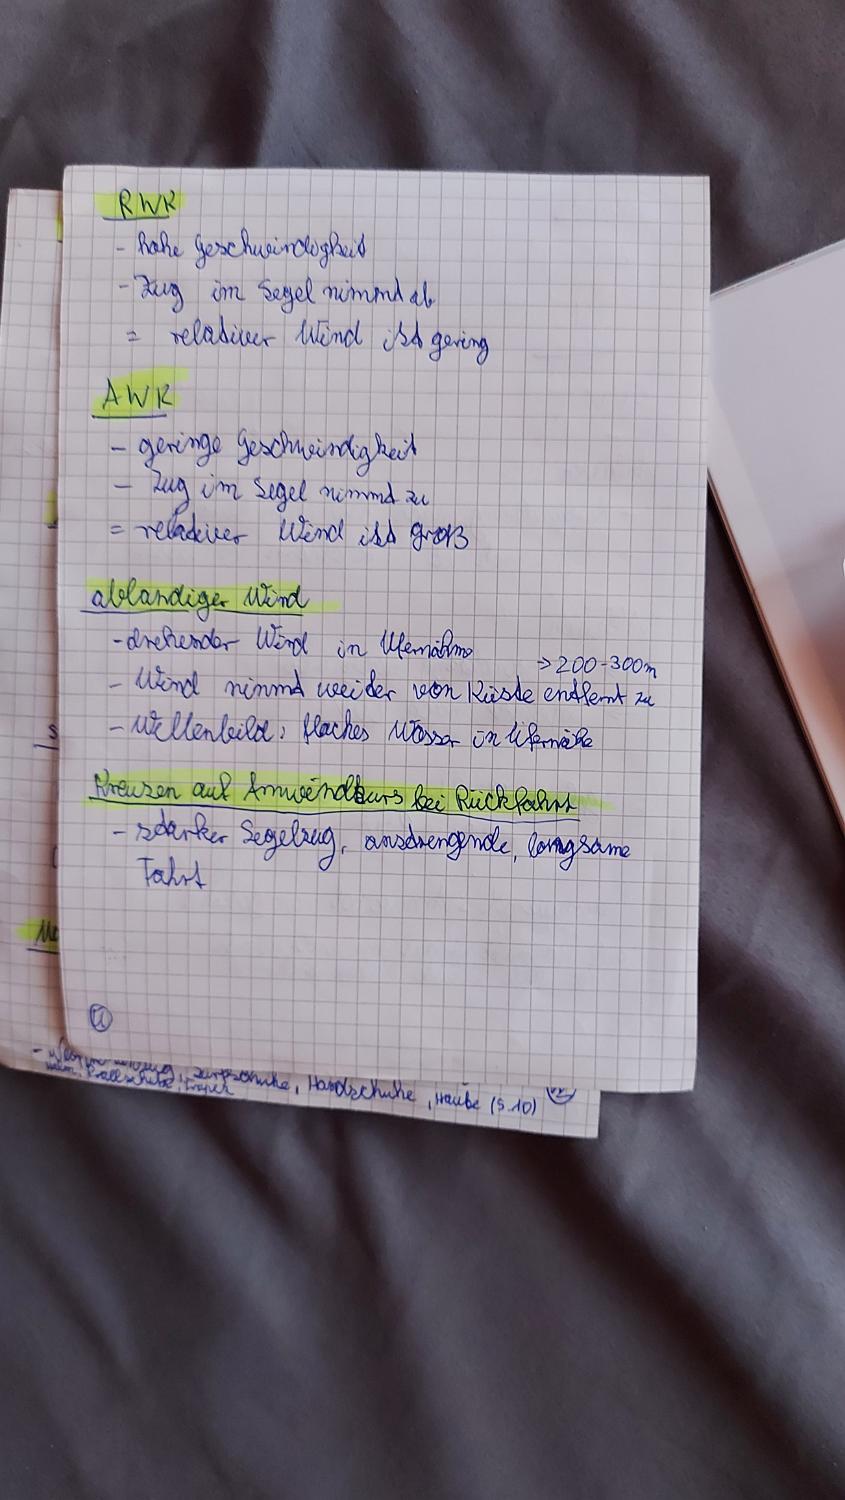 RWK
- hohe Geschwindigkeit
- Zug im Segel nimmd ab
= relativer Wind ist gering
AWK
- geringe Geschwindigkeit
- Zug im Segel nimmd zu
= relativer Wind ist groß
ablandiger Wind
- drehender Wind in Ufernähe
→ 200-300m
- Wind nimmd weider von Küste entfernt zu
- Wellenbild: flaches Wasser in Ufernähe
Kreuzen auf Amwindkurs bei Rückfahrt
- starker Segelzug, anstrengende, langsame
Fahrt
, Handschuhe, Haube (S.10)